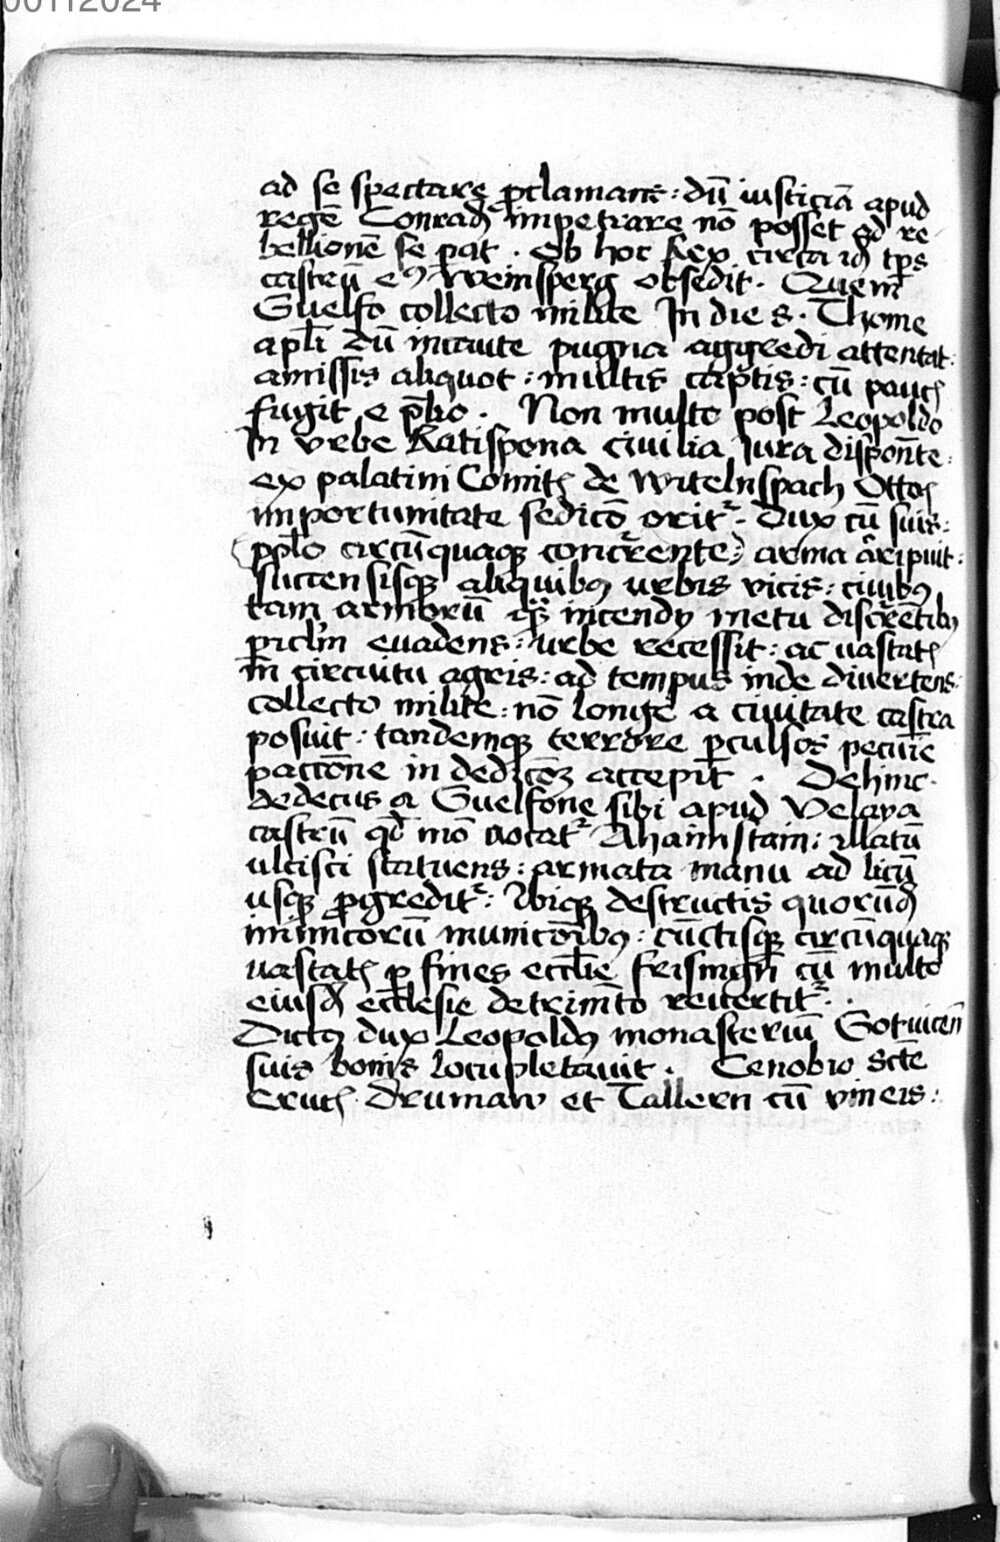 00112024
ad se spectare ꝓclamans: dū iusticiā apud
regē Conradū impetrare nō posset ad re
bellionē se pat. Ob hoc Rex circa id tp̄s
castrū eiꝰ Weinsperg obsedit. Quem
Guelfo collecto milite In die s. Thome
apl̄i dū incaute pugna aggredi attentat:
amissis aliquot: multis captis: cū paucis
fugit e p̄lio. Non multo post Leopoldo
In vrbe Ratispona civilia Iura dispon̄te:
ex palatini Comitis de Witelnspach Ottonis
importunitate sedicō orit᷑. Dux cū suis:
(pp̄lo circūquaqꝫ concurrente) arma arripuit:
succensisqꝫ aliquibꝰ vrbis vicis: civibꝰ
tam armorū qᷓ incendy metu discurrētibꝰ
piclm̄ evadens: vrbe recessit: ac vastatis
in circuitu agris: ad tempus inde divertens:
collecto milite: nō longe a civitate castra
posuit: tandemqꝫ terrore ꝑculsos pecunie
paccōne in dedicōꝫ accepit. Dehinc
dedecus a Guelfone sibi apud Velaya
castrū qd̄ mō vocat᷑ Ahaimstain: illatū
ulcisci statuens: armata manu ad licū
usqꝫ ꝓgredit᷑: Ibiqꝫ destructis quorūdā
inimicorū municōibꝰ: cūctisqꝫ circūquaqꝫ
vastatis ꝑ fines ecclīe frisingn̄ cū multo
eiusdē ecclesie detrimēto revertit᷑.
Dictꝰ dux Leopoldꝰ monasteriū Gotwicen̄
suis bonis locupletavit. Cenobio scte
Crucis Drumaw et Tallern cū vineis: